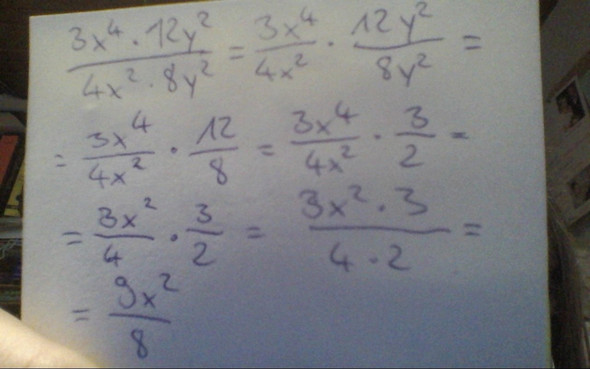 (3x⁴ · 12y²)/(4x² · 8y²) = 3x⁴/4x² · 12y²/8y² =
= 3x⁴/4x² · 12/8 = 3x⁴/4x² · 3/2 =
= 3x²/4 · 3/2 = (3x² · 3)/(4 · 2) =
= 9x²/8